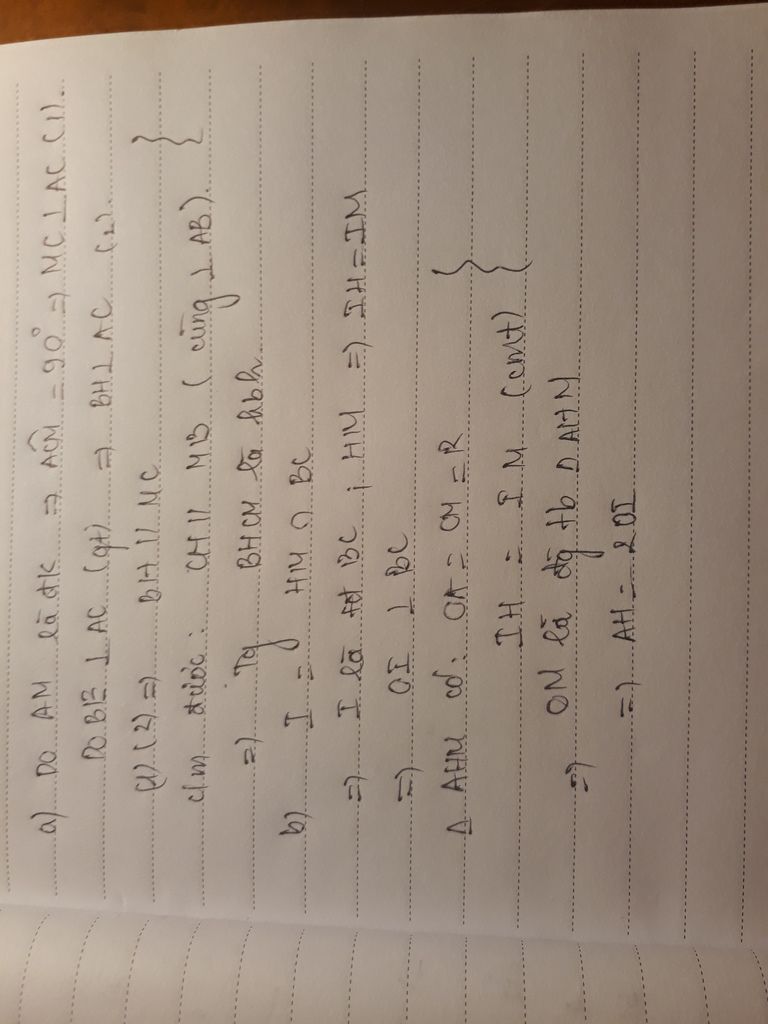 a) Do AM là đk => ACM̂ = 90° => MC ⊥ AC (1).
Do BE ⊥ AC (gt) => BH ⊥ AC (2).
(1) (2) => BH // MC }
c/m được : CH // MB ( cùng ⊥ AB). }
=> Tg BHCM là hbh.
b) I = HM ∩ BC
=> I là tđ BC ; HM => IH = IM
=> OI ⊥ BC
Δ AHM có: OA = OM = R }
IH = IM (cmt) }
=> ON là đg tb Δ AHM
=> AH = 2OI